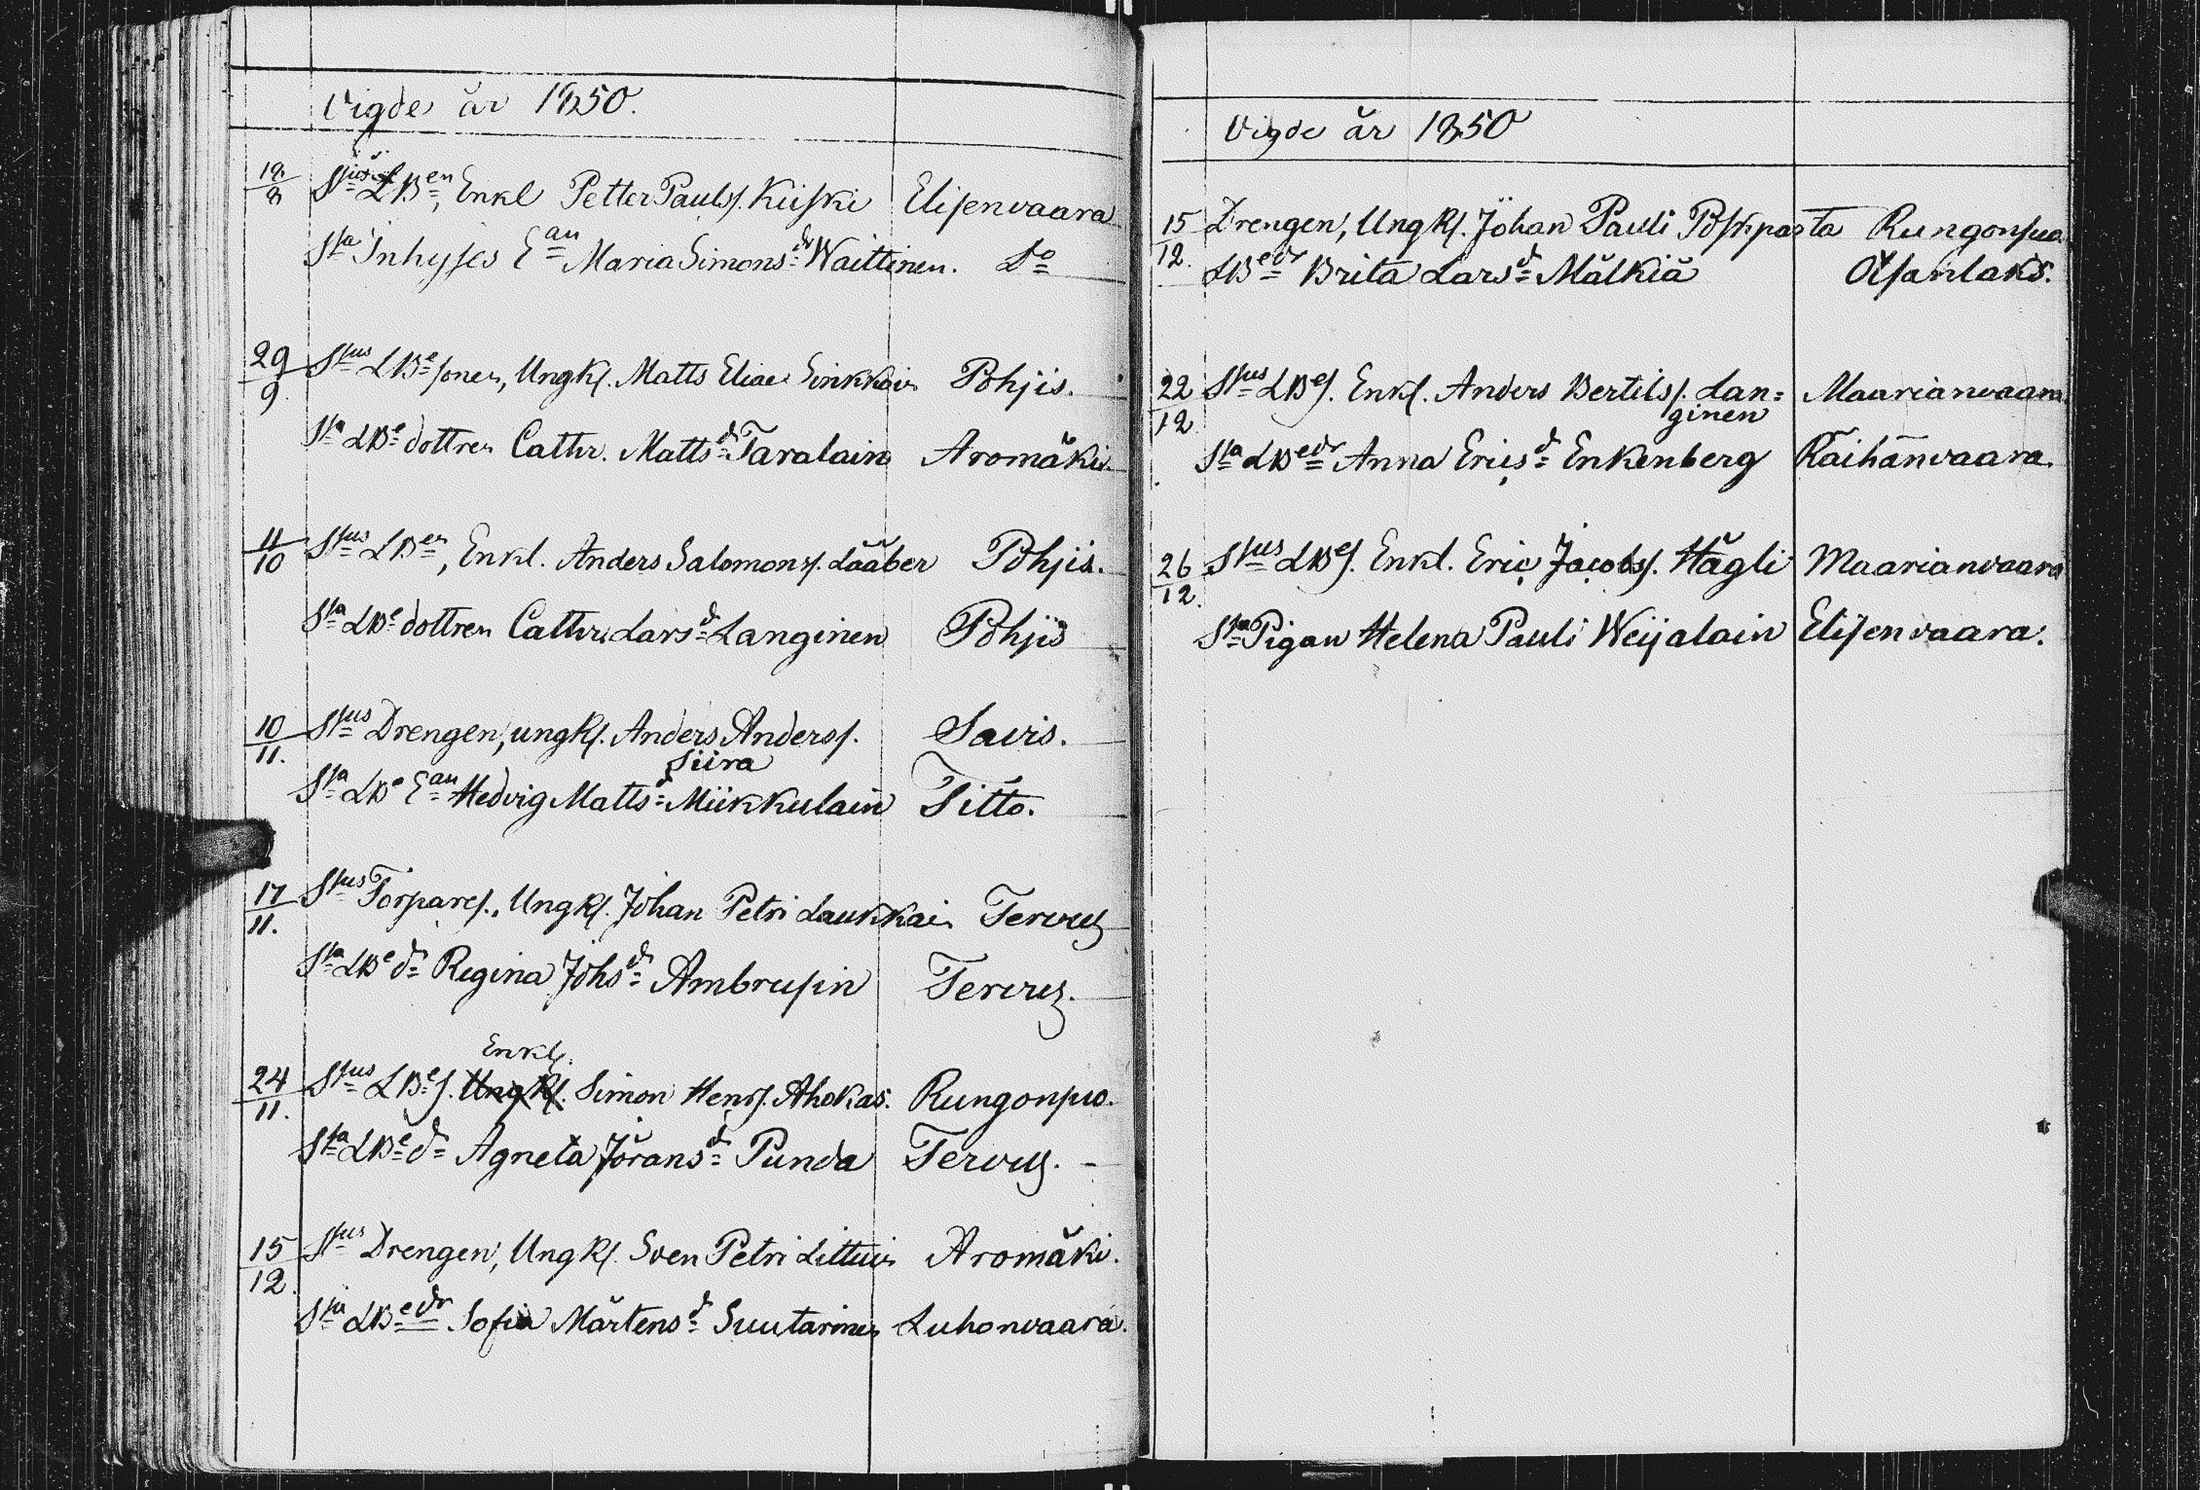 Vigde år 1850.
18/8 Sjus LBen, Enkl Petter Paulss. Kiiski Elisenvaara
Sja Inhyses Ean Maria Simonsdr Waittinen. Do
29/9 Sjus LBesonen, Ungk. Matts Eliae Sinkkoin Pohjis.
Sja LBe dottren Cathr. Mattsdr Taralain Aromäki.
11/10 Sjus LBen, Enkl. Anders Salomons. Lääber Pohjis.
Sja LBe dottren Cathr. Larsdr Langinen Pohjis
10/11. Sjus Drengen, ungk. Anders Anderss. Savis.
Siira
Sja LBe Ean Hedvig Mattsdr Miikkulain Titto.
17/11. Sjus Torpares., Ungk. Johan Petri Laukkain Tervus
Sja LBe dr Regina Johsdr Ambrusin Tervus.
Enkl.
24/11. Sjus LBes. Ungk. Simon Henrs. Ahokas. Rungonpuo.
Sja LBe dr Agneta Jöransdr Punda Tervus.
15/12. Sjus Drengen, Ungk. Sven Petri Littuin Aromäki.
Sja LBedr Sofia Mårtensd Suutarinen Luhonvaara.
Vigde år 1850
15/12. Drengen, Ungk. Johan Pauli Poskparta
LBedr Brita Larsd Mälkiä
22/12 Sjus LBes. Enkl. Anders Bertilss. Lan= Maarianvaara
ginen
Sja LBedr Anna Ericsd Enkenberg Räihänvaara.
26/12. Sjus LBes. Enkl. Eric Jacobss. Hägli Maarianvaara
Sja Pigan Helena Pauli Weijalain Elisenvaara.